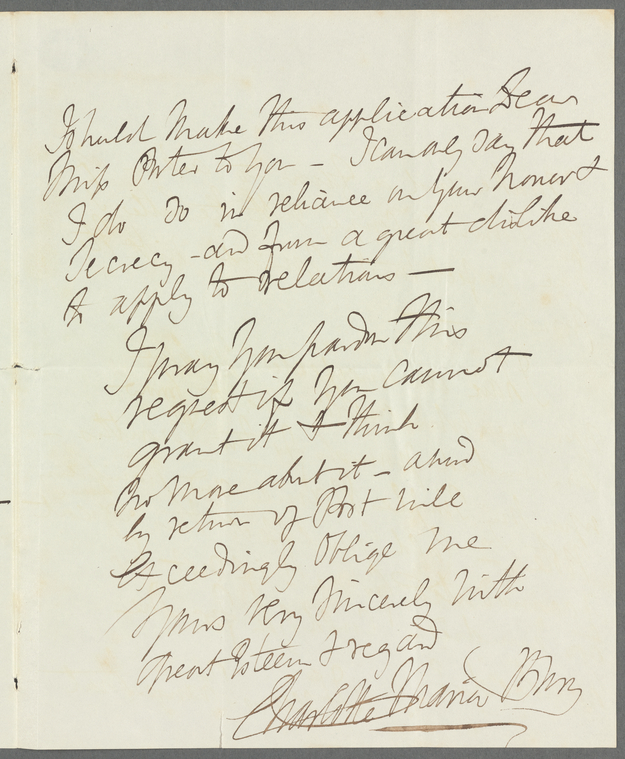 I should make this application Dear
Miss Porter to you – I can only say that
I do so in reliance on your honor &
secrecy – and from a great dislike
to apply to relations –
I pray you pardon this
request if you cannot
grant it & think
no more about it – a word
by return of Post will
exceedingly oblige me
Yours very sincerely with
great esteem & regard
Charlotte Maria Bury